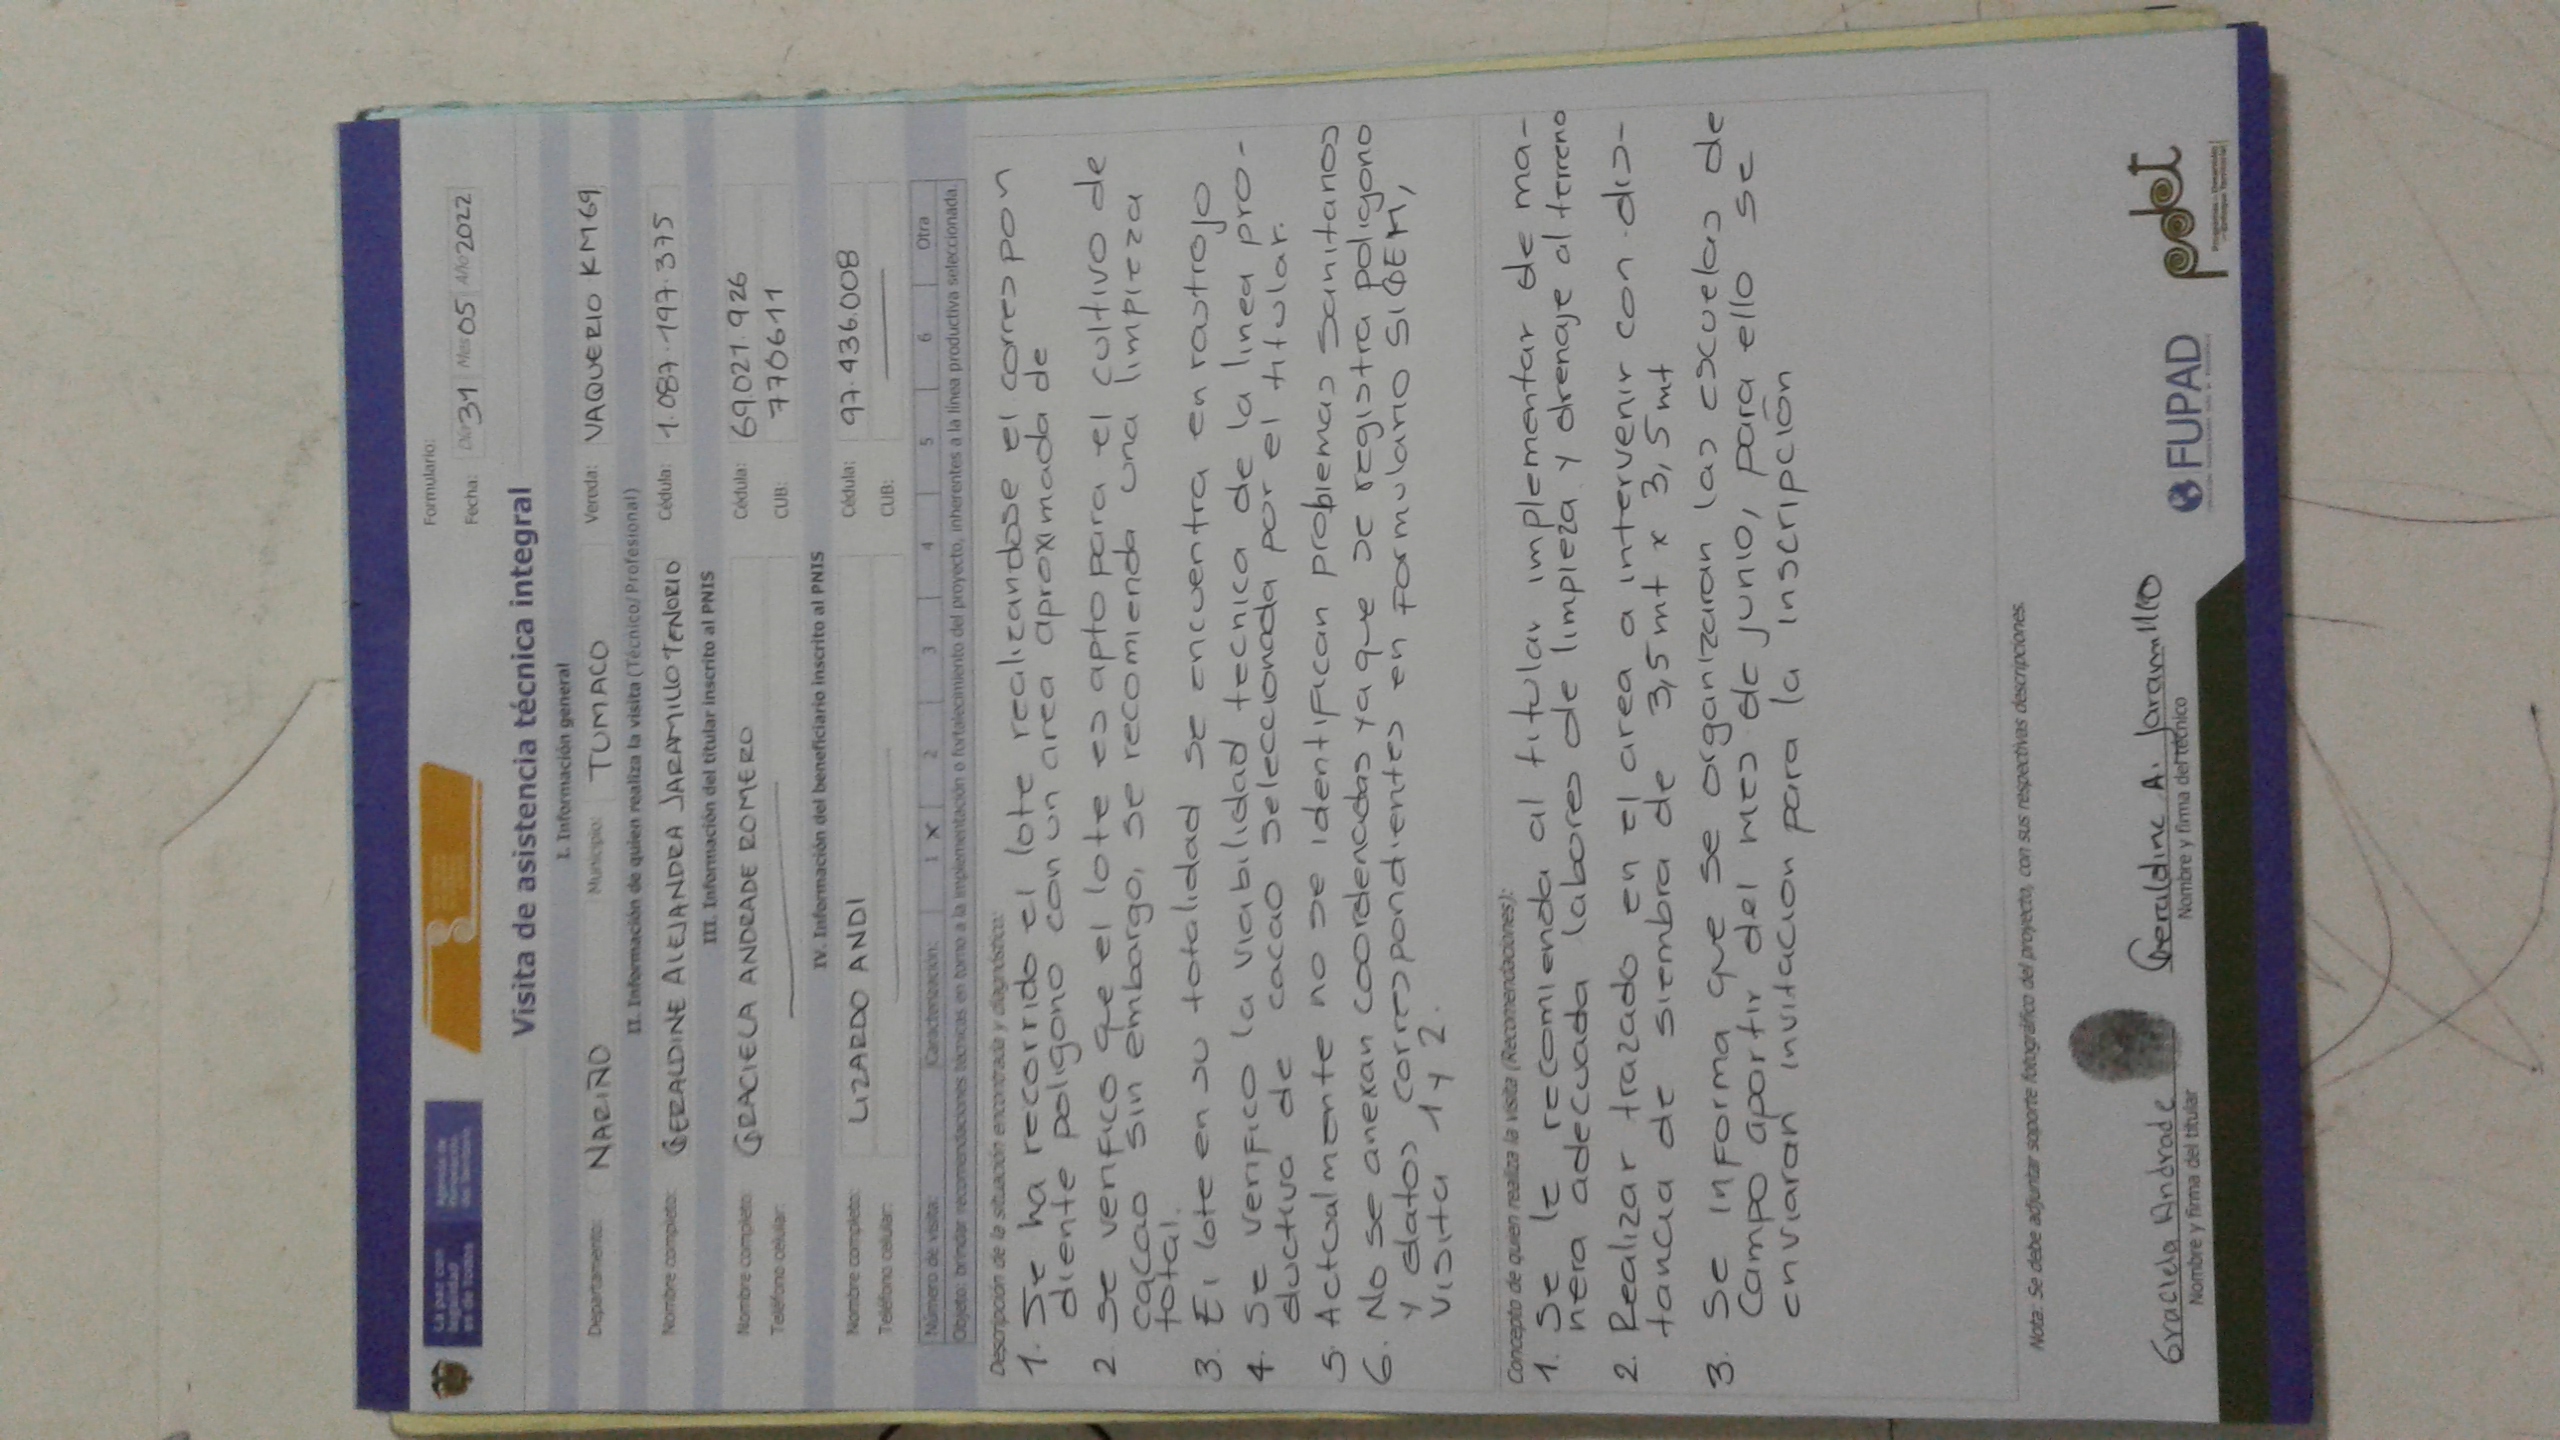 La paz con legalidad es de todos
Agencia de Renovación del Territorio
Formulario:
Fecha: Día 31 Mes 05 Año 2022
Visita de asistencia técnica integral
I. Información general
Departamento: NARIÑO Municipio: TUMACO Vereda: VAQUERIO KM 69
II. Información de quien realiza la visita (Técnico/Profesional)
Nombre completo: GERALDINE ALEJANDRA JARAMILLO TENORIO Cédula: 1.087.197.375
III. Información del titular inscrito al PNIS
Nombre completo: GRACIELA ANDRADE ROMERO Cédula: 69.021.926
Teléfono celular: CUB: 770611
IV. Información del beneficiario inscrito al PNIS
Nombre completo: LIZARDO ANDI Cédula: 97.436.008
Teléfono celular: CUB:
Número de visita: Caracterización: 1 X 2 3 4 5 6 Otra
Objeto: brindar recomendaciones técnicas en torno a la implementación o fortalecimiento del proyecto, inherentes a la línea productiva seleccionada.
Descripción de la situación encontrada y diagnóstico:
1. Se ha recorrido el lote realizandose el correspon
diente poligono con un area aproximada de
2. se verifico que el lote es apto para el cultivo de
cacao sin embargo, se recomienda una limpieza
total.
3. El lote en su totalidad se encuentra en rastrojo
4. Se verifico la viabilidad tecnica de la linea pro-
ductiva de cacao seleccionada por el titular.
5. Actualmente no se identifican problemas sanitarios
6. No se anexan coordenadas ya que se registra poligono
y datos correspondientes en formulario SIGEM,
visita 1 y 2.
Concepto de quien realiza la visita (Recomendaciones):
1. Se le recomienda al titular implementar de ma-
nera adecuada labores de limpieza y drenaje al terreno
2. Realizar trazado en el area a intervenir con dis-
tancia de siembra de 3,5 mt x 3,5 mt
3. Se informa que se organizaran las escuelas de
Campo apartir del mes de junio, para ello se
enviaran invitacion para la inscripción
Nota: Se debe adjuntar soporte fotográfico del proyecto, con sus respectivas descripciones.
Graciela Andrade Geraldine A. Jaramillo
Nombre y firma del titular Nombre y firma del técnico
FUPAD
pdet